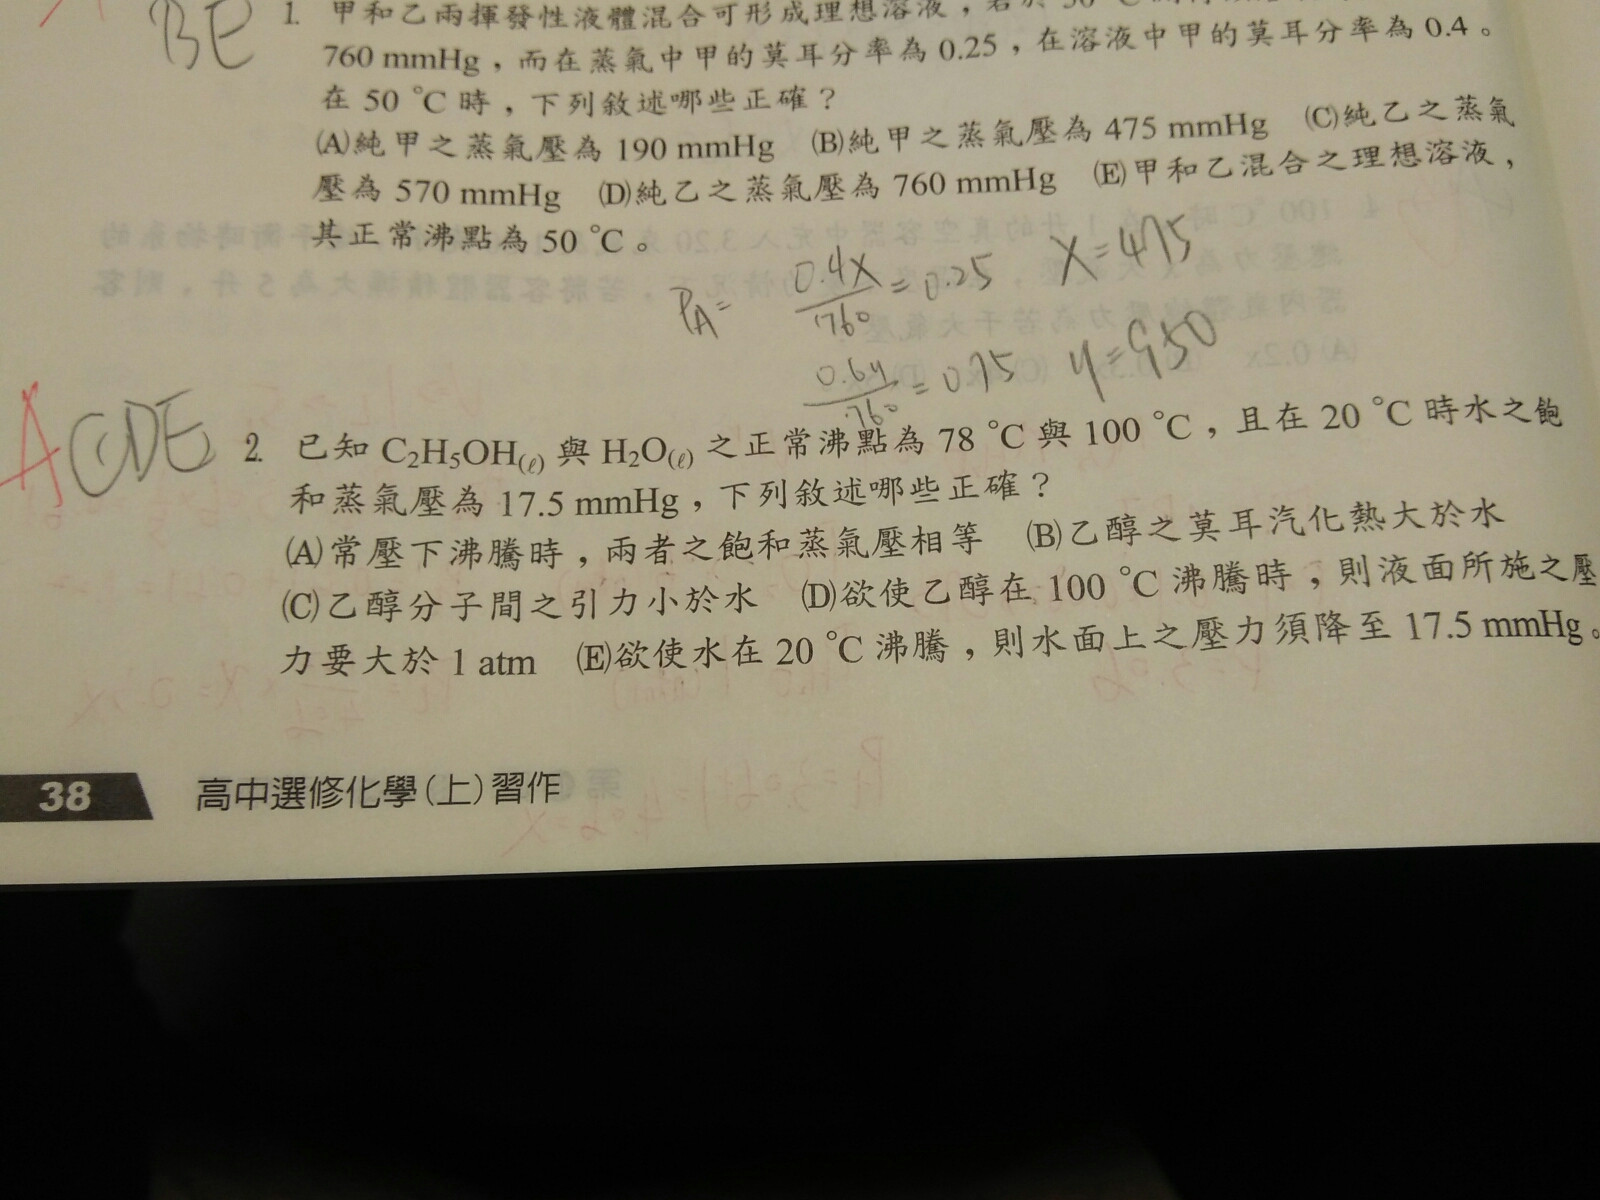 BE 1. 甲和乙兩揮發性液體混合可形成理想溶液，若於 50 °C
760 mmHg，而在蒸氣中甲的莫耳分率為 0.25，在溶液中甲的莫耳分率為 0.4。
在 50 °C 時，下列敘述哪些正確？
(A)純甲之蒸氣壓為 190 mmHg (B)純甲之蒸氣壓為 475 mmHg (C)純乙之蒸氣
壓為 570 mmHg (D)純乙之蒸氣壓為 760 mmHg (E)甲和乙混合之理想溶液，
其正常沸點為 50 °C。
PA= 0.4X/760 = 0.25 X=475
0.6y/760 = 0.75 y=950
ACDE 2. 已知 C2H5OH(ℓ) 與 H2O(ℓ) 之正常沸點為 78 °C 與 100 °C，且在 20 °C 時水之飽
和蒸氣壓為 17.5 mmHg，下列敘述哪些正確？
(A)常壓下沸騰時，兩者之飽和蒸氣壓相等 (B)乙醇之莫耳汽化熱大於水
(C)乙醇分子間之引力小於水 (D)欲使乙醇在 100 °C 沸騰時，則液面所施之壓
力要大於 1 atm (E)欲使水在 20 °C 沸騰，則水面上之壓力須降至 17.5 mmHg。
38 高中選修化學(上)習作